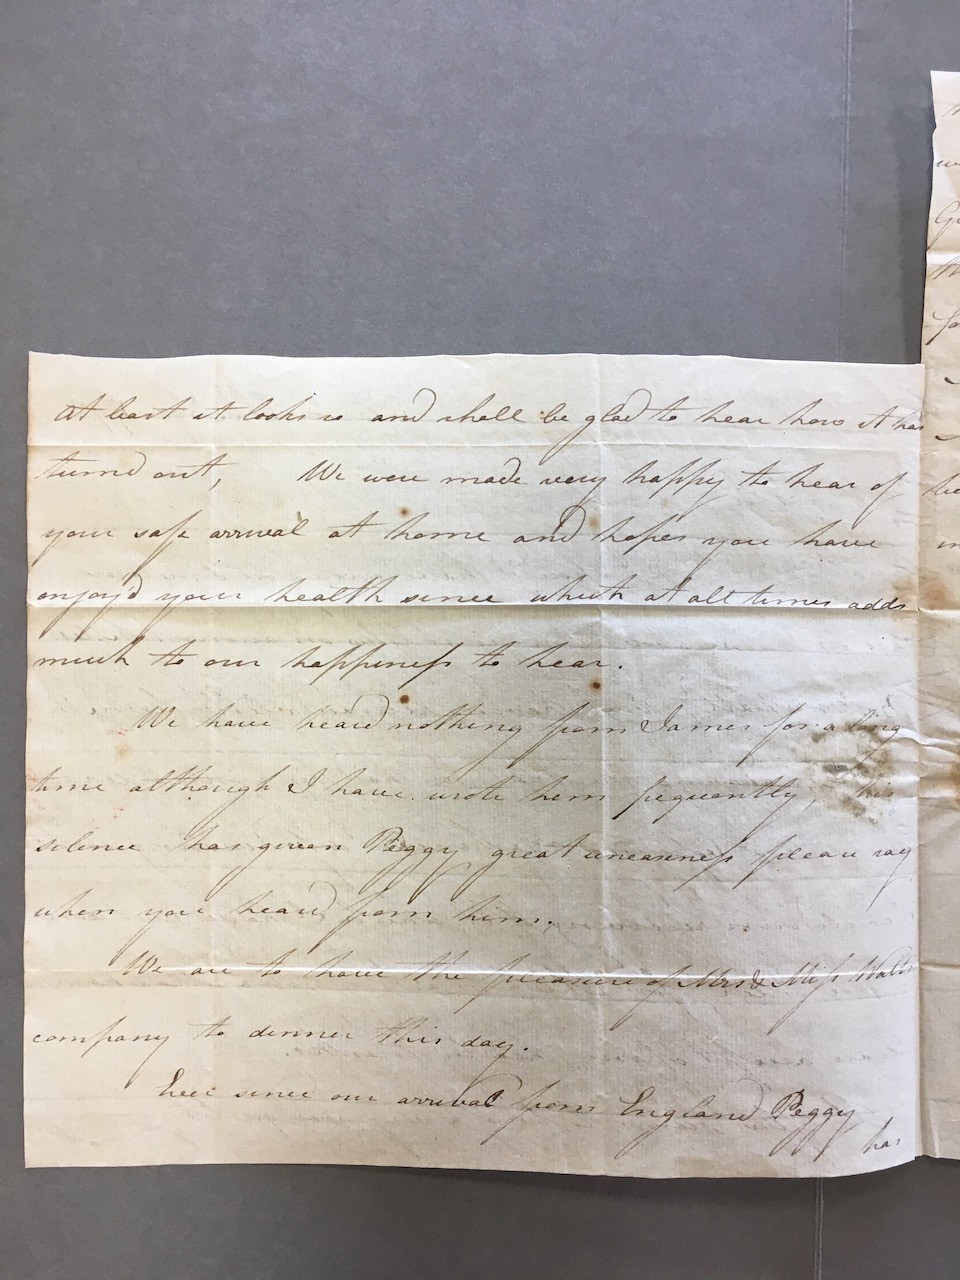 at least it looks so and shall be glad to hear how it has
turnd out, We were made very happy to hear of
your safe arrival at home and hopes you have
enjoy'd your health since which at all times adds
much to our happiness to hear.
We have heard nothing from James for a long
time although I have wrote him frequently, his
silence has given Peggy great uneasiness please say
when you heard from him.
We are to have the pleasure of Mrs & Miss Walts
company to dinner this day.
Ever since our arrival from England Peggy
has